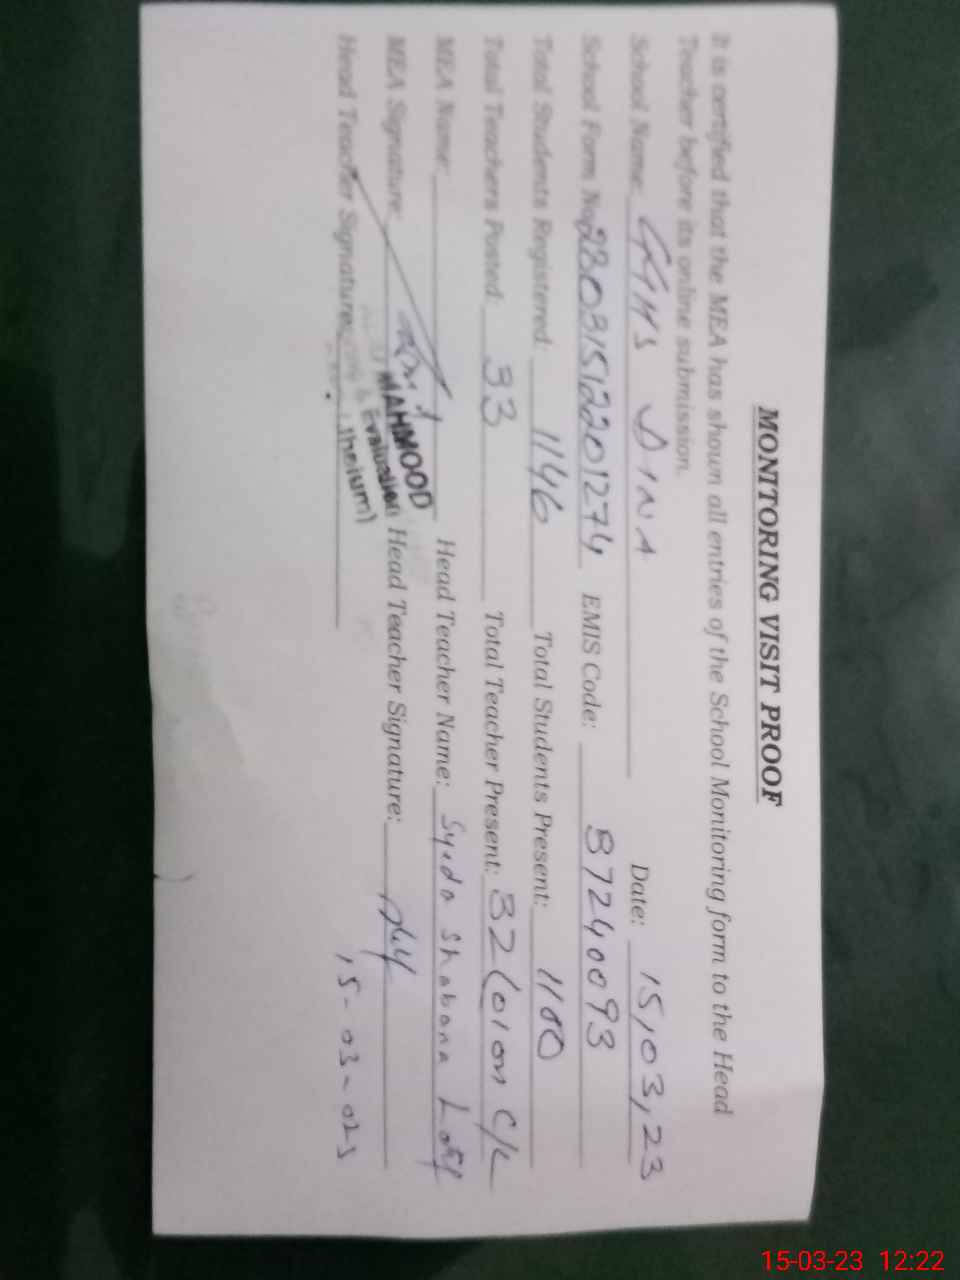 MONITORING VISIT PROOF
It is certified that the MEA has shown all entries of the School Monitoring form to the Head
Teacher before its online submission.
School Name: GGHS DINA Date: 15,03,23
School Form No: 2303151220 1274 EMIS Code: 37240093
Total Students Registered: 1146 Total Students Present: 1100
Total Teachers Posted: 33 Total Teacher Present: 32 (01 on C/L
MEA Name: MAHMOOD Head Teacher Name: Syeda Shabana Latif
MEA Signature: & Evaluation Head Teacher Signature:
Head Teacher Signature: Jhelum)
15-03-023
15-03-23 12:22